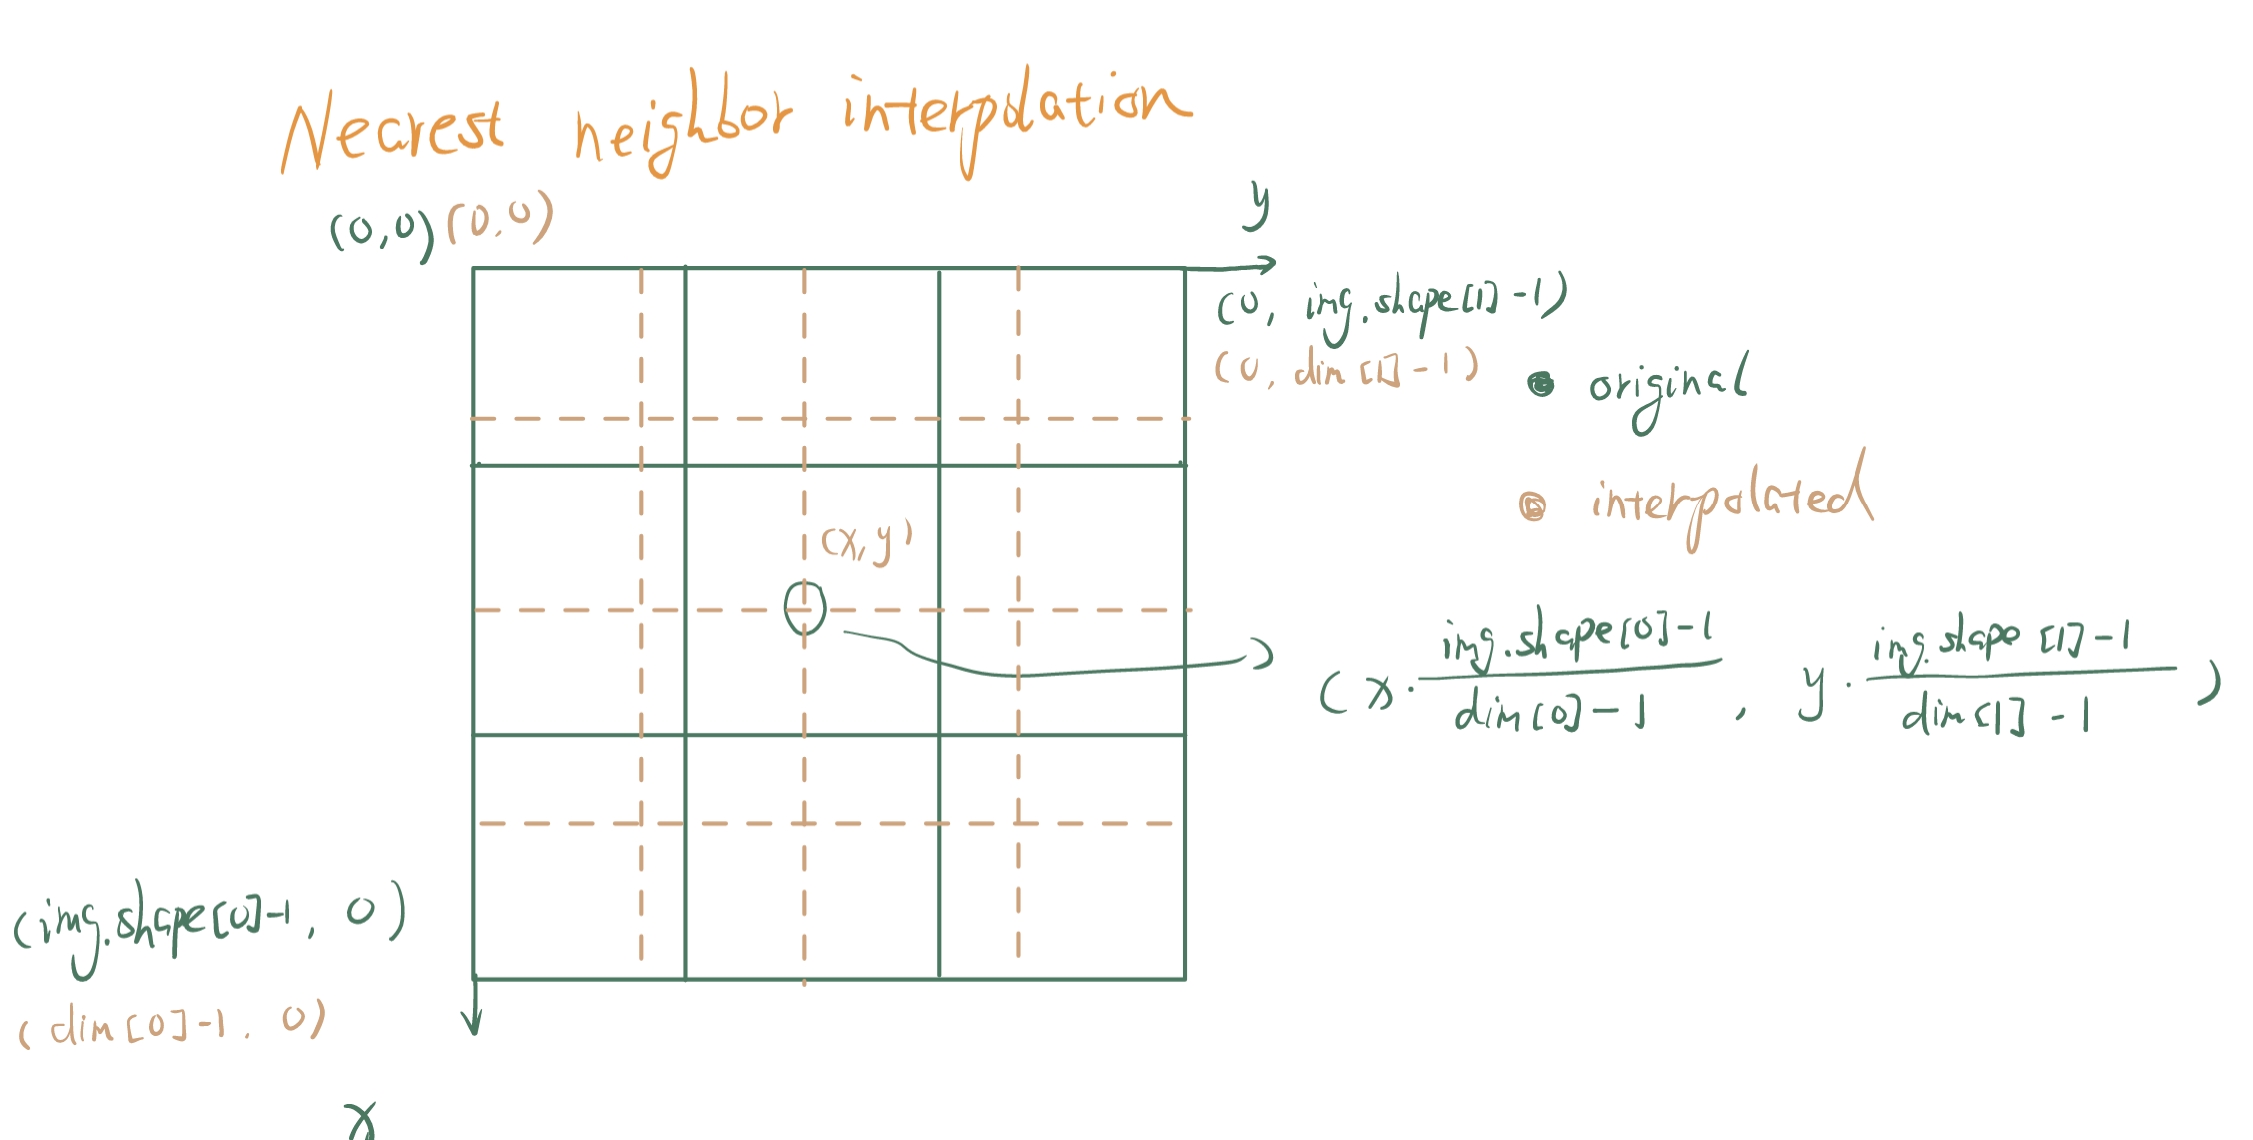 Nearest neighbor interpolation
(0,0) (0,0)
y
(0, img.shape[1]-1)
(0, dim[1]-1)
original
interpolated
(x,y)
(x · img.shape[0]-1 / dim[0]-1 , y · img.shape[1]-1 / dim[1]-1 )
(img.shape[0]-1, 0)
(dim[0]-1, 0)
x